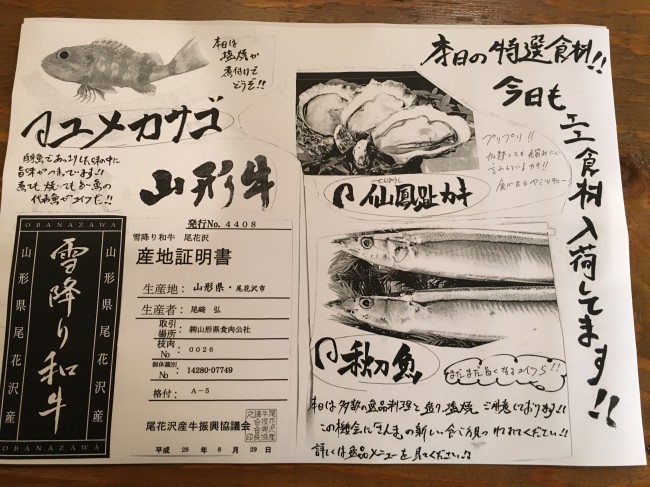 本日の特選食材!!
今日もエエ食材入荷してます!!
本日は
塩焼か
煮付けで
どうぞ!!
ユメカサゴ
白身魚であっさりした味の中に
旨味がつまってます!!
煮ても焼いても
代表魚がコイツだ!!
山形牛
プリプリ!!
加熱しても縮みにくい
せんぽうし
仙鳳趾カキ
秋刀魚
まだまだ旨くなるコイツら!!
本日は多数の逸品料理と造り、塩焼ご用意しております!!
この機会にさんまの新しい食べ方見つけれてください!!
詳しくは逸品メニューを見てください!!
OBANAZAWA
山形県尾花沢産
雪降り和牛
山形県尾花沢産
OBANAZAWA
発行No. 4408
雪降り和牛 尾花沢
産地証明書
生産地: 山形県・尾花沢市
生産者: 尾崎 弘
取引場所: ㈱山形県食肉公社
枝肉No : 0026
個体識別No : 14280-07749
格付: A-5
尾花沢産牛振興協議会
平成 28年 8月 29日